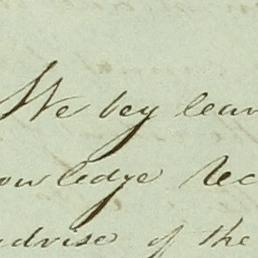 We beg leav
owledge rec
advise of the